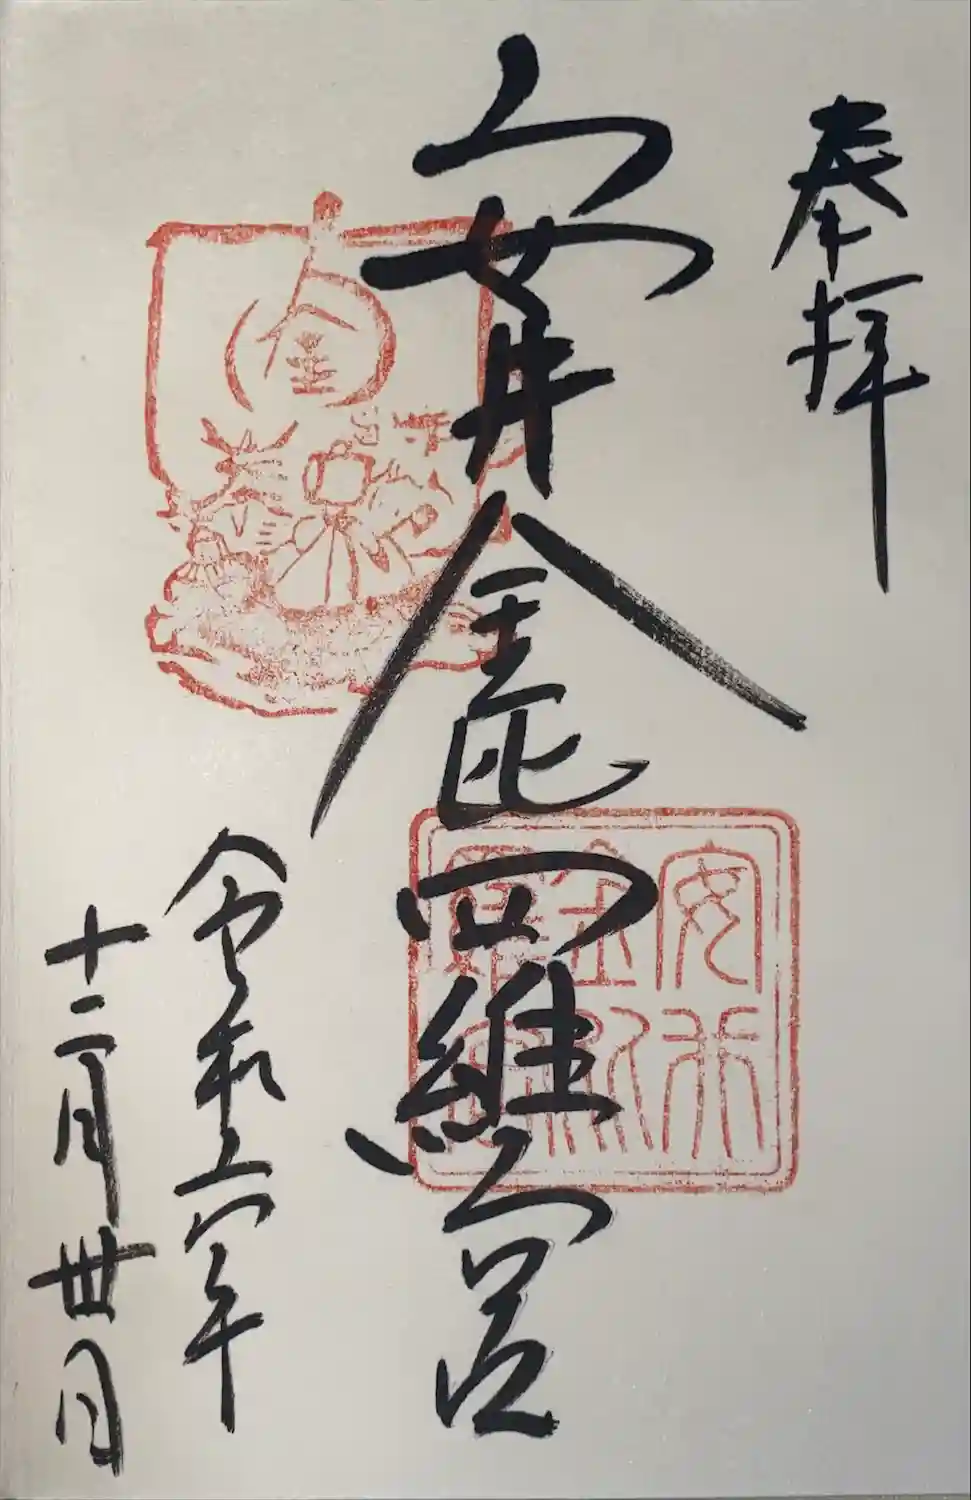 奉拝
安井金比羅宮
令和六年
十二月丗日
金
安井
金比
羅宮